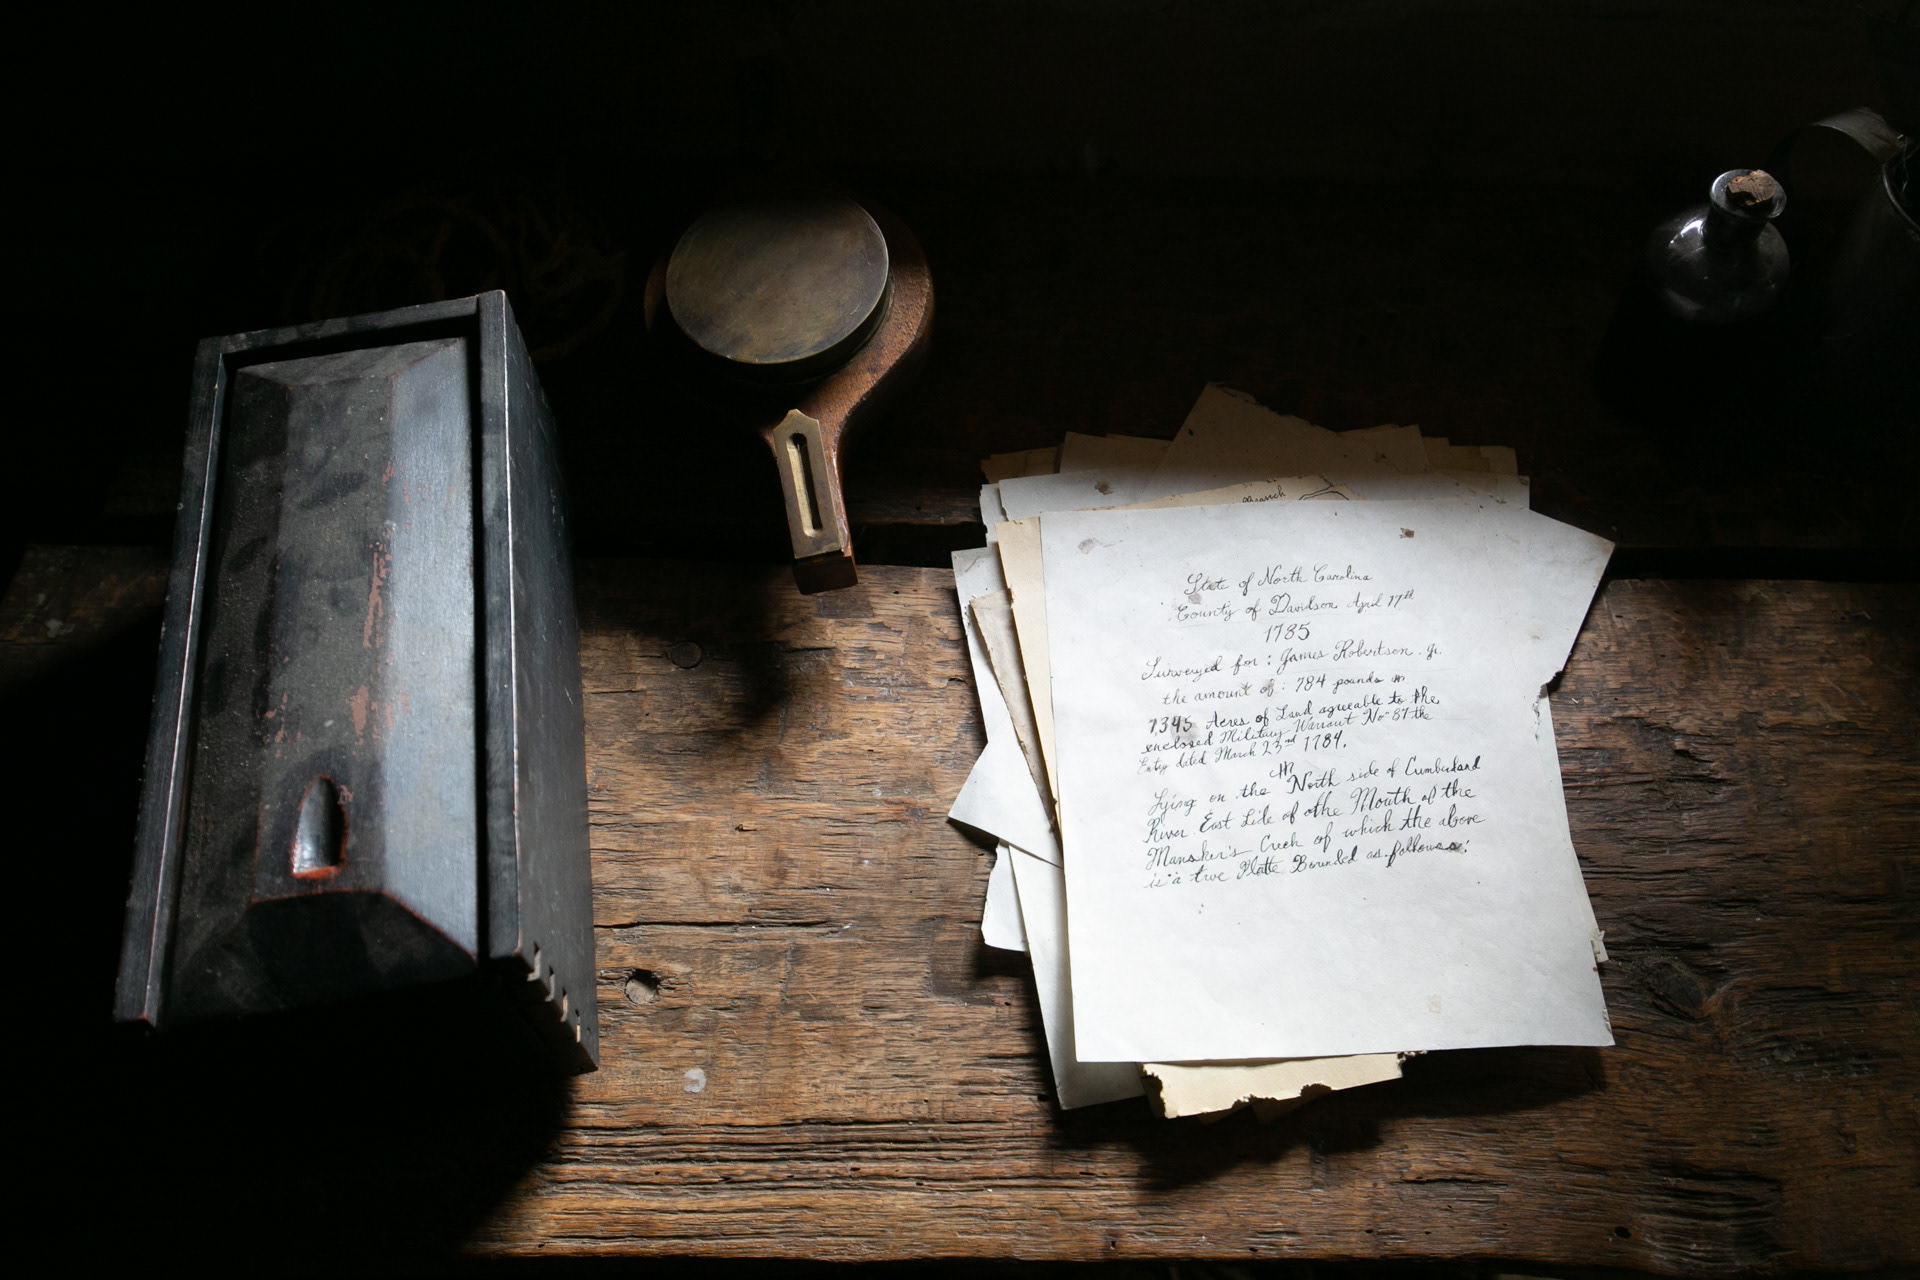 Branch
State of North Carolina
County of Davidson April 17th
1785
Surveyed for : James Robertson . Jr.
the amount of : 784 pounds in
7,345 Acres of Land agreeable to the
enclosed Military Warrant No 87 the
Entry dated March 23rd 1784.
Lying on the North side of Cumberland
River East Side of the Mouth of the
Mansker's Creek of which the above
is a true Platte Bounded as follows: